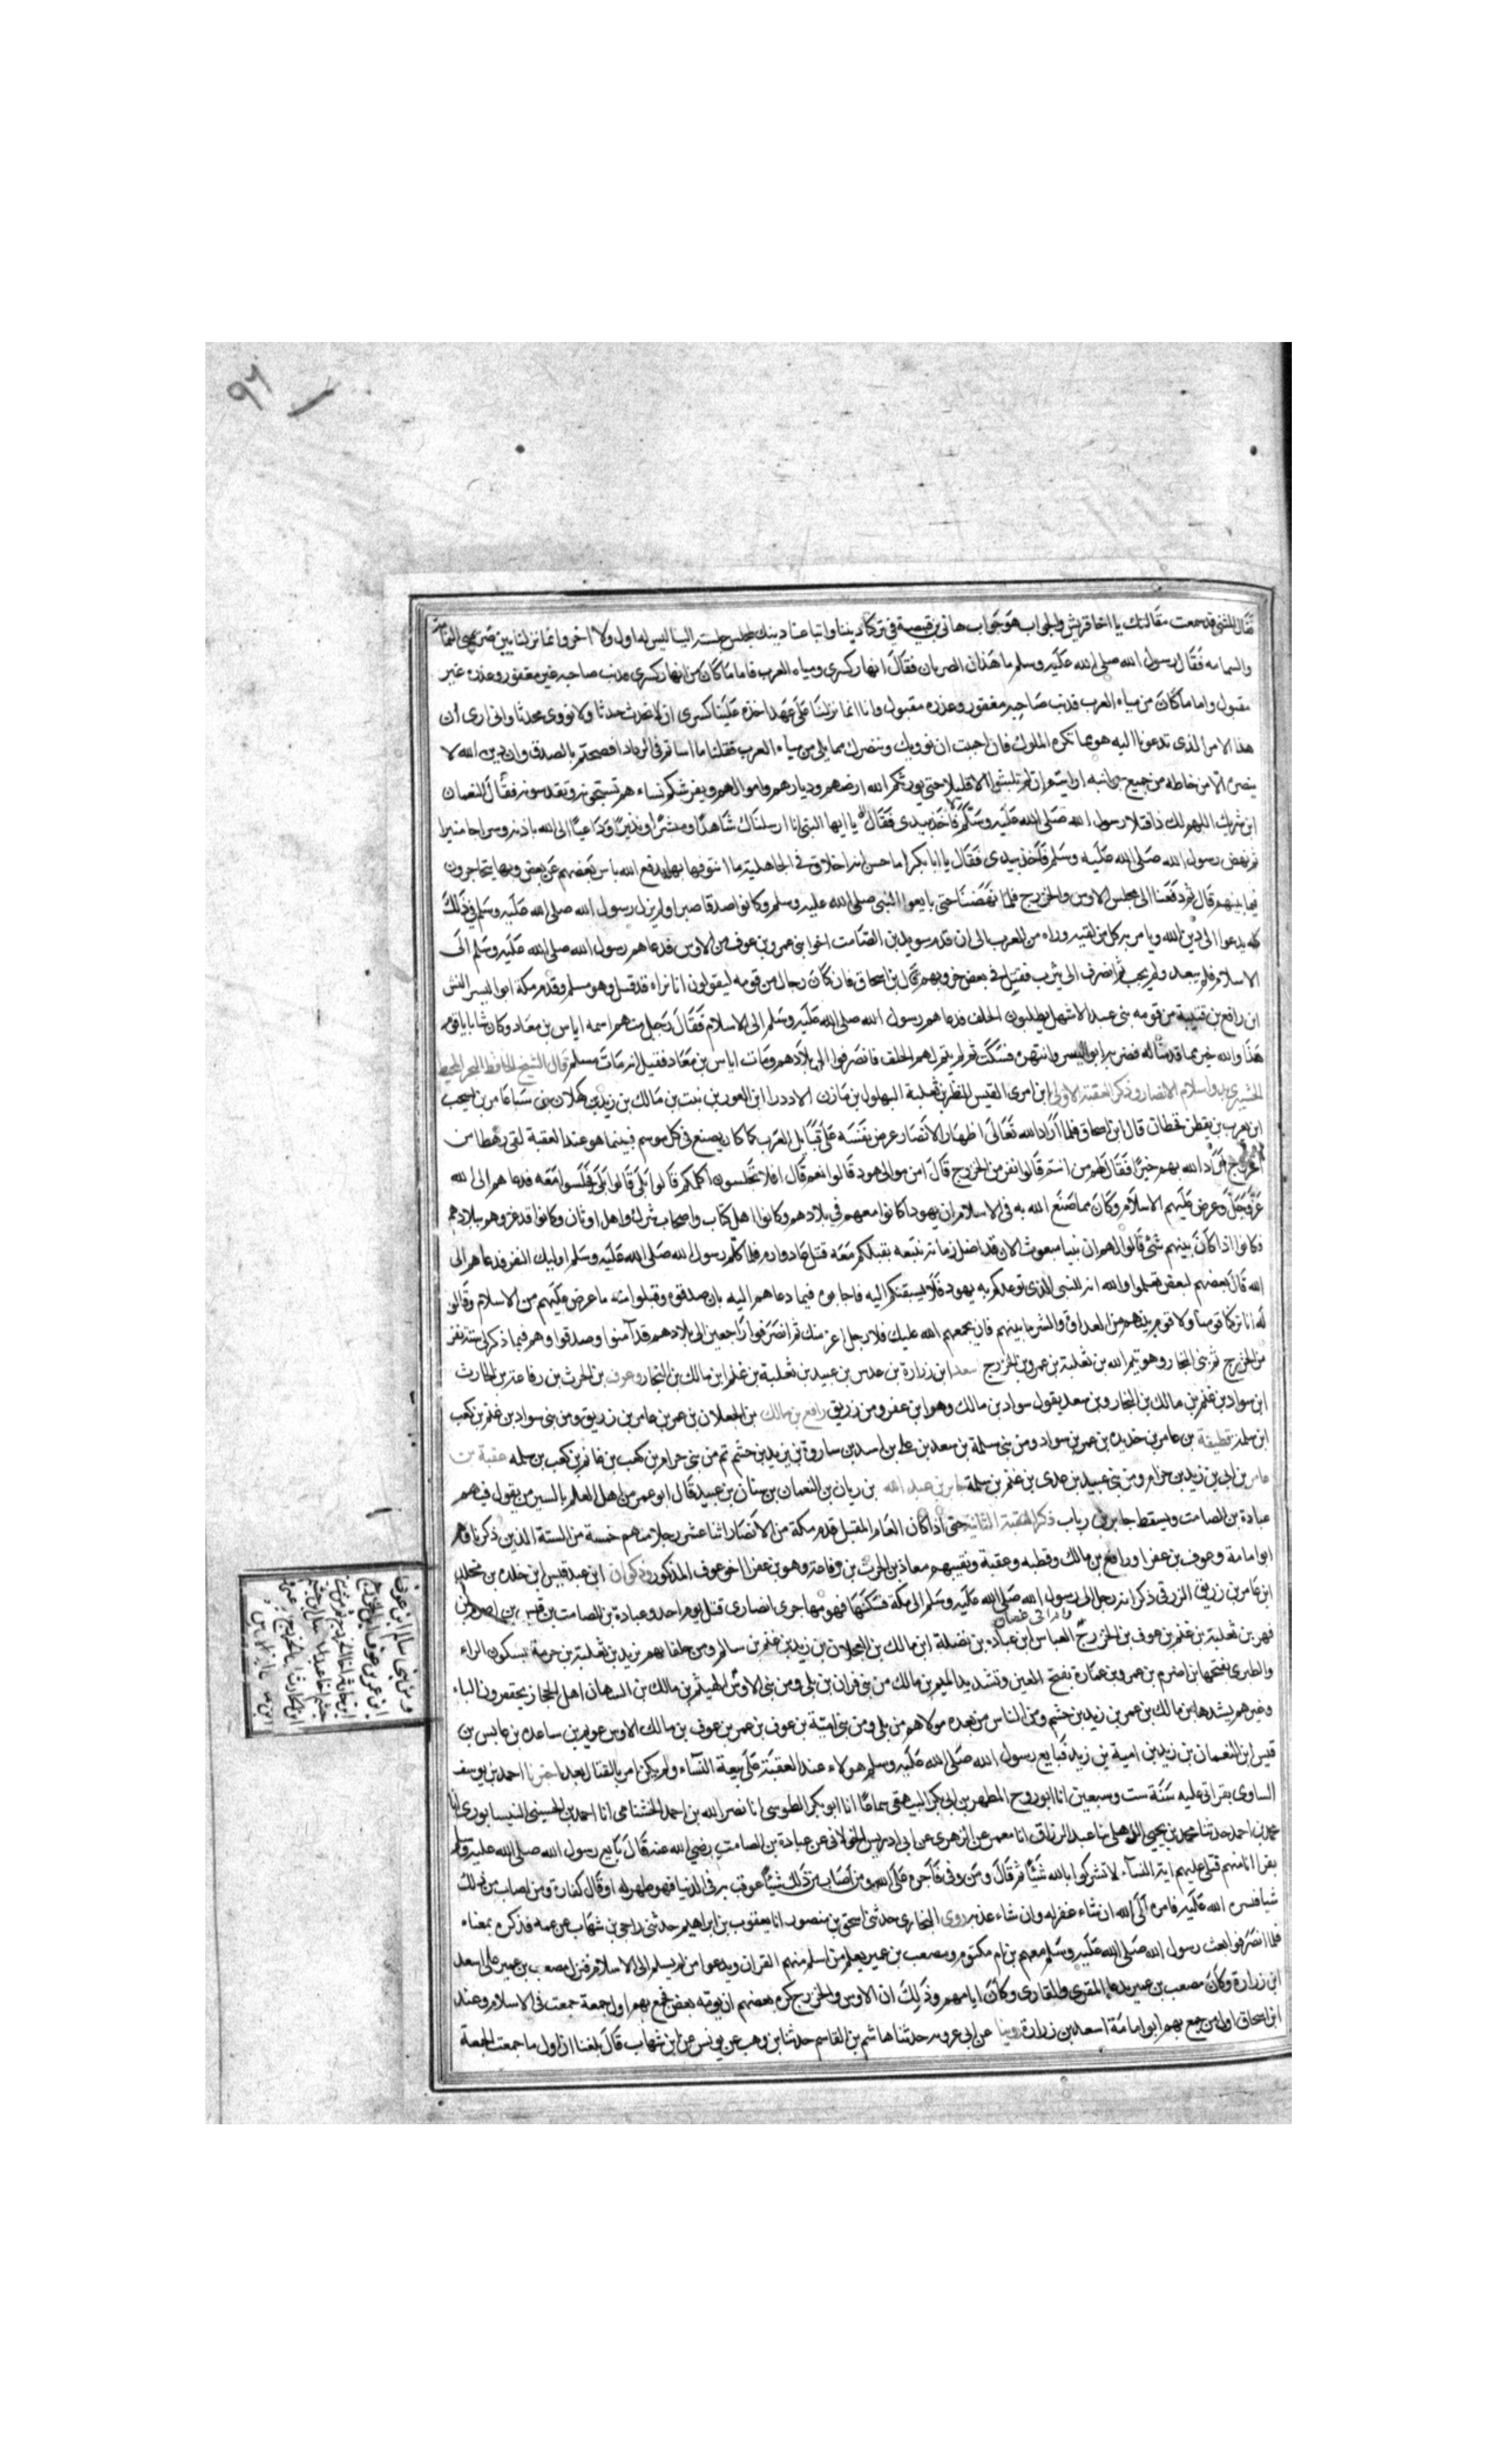 ٩٦
فقال المثنى قد سمعت مقالتك يا اخا قريش والجواب هو جواب هانى بن قبيصة في تركنا ديننا واتباعنا دينك لمجلس جلسته الينا ليس له اول ولا اخر وانما نزلنا بين
والسمامه فقال رسول الله صلى الله عليه وسلم ما هذان الصريان فقال انهار كسرى ومياه العرب فاما ما كان من انهار كسرى فذنب صاحبه غير مغفور وعذره غير
مقبول واما ما كان من مياه العرب فذنب صاحبه مغفور وعذره مقبول وانا انما نزلنا على عهد اخذه علينا كسرى ان لا نحدث حدثا ولا نؤوى محدثا وانى ارى أن
هذا الامر الذى تدعونا اليه هو مما تكره الملوك فان احببت ان نوويك وننصرك مما يلى من مياه العرب فعلنا ما اساتم فى الرد اذ افصحتم بالصدق وان دين الله لا
ينصره الا من حاطه من جميع جوانبه ارايتم ان لم تلبثوا الا قليلا حتى يورثكم الله ارضهم وديارهم واموالهم ويفرشكم نساءهم تسبحونه وتقدسونه فقال النعمان
ابن شريك اللهم لك ذا فتلا رسول الله صلى الله عليه وسلم يا ايها النبى انا ارسلناك شاهدا ومبشرا ونذيرا وداعيا الى الله باذنه وسراجا منيرا
ثم نهض رسول الله صلى الله عليه وسلم فاخذ بيدى فقال يا ابا بكر اما حسن اخلاق فى الجاهلية ما اشرفها بها يدفع الله باس بعضهم عن بعض وبها يتحاجزون
فيما بينهم قال ثم دفعنا الى مجلس الاوس والخزرج فلما نهضنا حتى بايعوا النبى صلى الله عليه وسلم وكانوا صدقا صبرا ولم يزل رسول الله صلى الله عليه وسلم فى ذلك
كله يدعوا الى دين الله ويامر به كل من لقيه وراه من العرب الى ان قدم سويد بن الصامت اخوا بنى عمرو بن عوف من الاوس فدعاهم رسول الله صلى الله عليه وسلم الى
الاسلام فلم يبعد ولم يجب ثم انصرف الى يثرب فقتل فى بعض حروبهم قال ابن اسحاق فان كان رجال من قومه ليقولون انا نراه قد قتل وهو مسلم وقدم مكة ابو الحيسر انس
ابن رافع من قومه بنى عبد الاشهل يطلبون الحلف فدعاهم رسول الله صلى الله عليه وسلم الى الاسلام فقال رجل منهم اسمه اياس بن معاذ وكان شابا يا قوم
هذا والله خير مما قدمنا له فضربه ابو الحيسر وانتهره فسكت ثم لم يتم لهم الحلف فانصرفوا الى بلادهم ومات اياس بن معاذ فقيل انه مات مسلم قال الشيخ الحافظ
اسلام الانصار وذكر العقبة الاولى ابن امرى القيس البطريق بن ثعلبة البهلول بن مازن الازد ابن الغوث بن نبت بن مالك بن زيد بن كهلان بن سبا عامر بن يشجب
ابن يعرب بن يقطن قحطان قال ابن اسحاق فلما اراد الله تعالى اظهار الانصار عرض نفسه على قبايل العرب كما كان يصنع فى كل موسم فبينما هو عند العقبة لقى رهطا من
الخزرج اراد الله بهم خيرا فقال لهم من انتم قالوا نفر من الخزرج قال امن موالى يهود قالوا نعم قال افلا تجلسون اكلمكم قالوا بلى فجلسوا معه فدعاهم الى الله
عز وجل وعرض عليهم الاسلام وكان مما صنع الله به فى الاسلام ان يهودا كانوا معهم فى بلادهم وكانوا اهل كتاب واصحاب شرك واهل اوثان وكانوا قد غزوهم ببلادهم
وكانوا اذا كان بينهم شئ قالوا لهم ان نبيا مبعوث الان قد اظل زمانه نتبعه نقتلكم معه قتل عاد وارم فلما كلم رسول الله صلى الله عليه وسلم اوليك النفر ودعاهم الى
الله قال بعضهم لبعض تعلموا والله انه للنبى الذى توعدكم به يهود فلا يسبقنكم اليه فاجابوه فيما دعاهم اليه بان صدقوه وقبلوا منه ما عرض عليهم من الاسلام وقالوا
له انا تركنا قومنا ولا قوم بينهم من العداوة والشر ما بينهم فان يجمعهم الله عليك فلا رجل اعز منك ثم انصرفوا راجعين الى بلادهم قد آمنوا وصدقوا وهم فيما ذكر لى ستة نفر
من الخزرج ثم بنى النجار وهو تيم الله بن ثعلبة بن عمرو بن الخزرج سعد ابن زرارة بن عدس بن عبيد بن ثعلبة بن غنم ابن مالك بن النجار وعوف بن الحرث بن رفاعة بن الحارث
ابن سواد بن غنم بن مالك بن النجار وبن سعد يقول سواد بن مالك وهو ابن عفرا ومن زريق رافع بن مالك بن العجلان بن عمرو بن عامر بن زريق ومن بنى سواد بن غنم بن كعب
ابن سلمة قطبة بن عامر بن حديده بن عمرو بن سواد ومن بنى سلمة بن سعد بن على بن اسد بن ساردة بن يزيد بن جشم ثم من بنى حرام بن كعب بن غانم بن كعب بن سلمه عقبة بن
عامر بن نابى بن زيد بن حرام ومن بنى عبيد بن عدى بن غنم بن سلمة جابر بن عبد الله بن رياب بن النعمان بن سنان بن عبيد قال ابو عمر من اهل العلم بالسير من يقول فيهم
عبادة بن الصامت ويسقط جابر بن رياب ذكر العقبة الثانية حتى اذا كان العام المقبل قدم مكة من الانصار اثنا عشر رجلا منهم خمسة من الستة الذين ذكرناهم
ابو امامة وعوف بن عفرا ورافع بن مالك وقطبه وعقبة وبقيتهم معاذ بن الحرث بن رفاعة وهو بن عفرا اخو عوف المذكور وذكوان ابن عبد قيس ابن خلده بن مخلد
ابن عامر بن زريق الزرقى ذكر انه رحل الى رسول الله صلى الله عليه وسلم الى مكة فسكنها فهو مهاجرى انصارى قتل يوم احد وعبادة بن الصامت بن قيس بن اصرم ابن
فهر بن ثعلبة بن غنم بن عوف بن الخزرج العباس ابن عبادة بن نضلة ابن مالك بن العجلان بن زيد بن غنم بن سالم ومن حلفايهم يزيد بن ثعلبة بن خزمة بسكون الزاء
والطبرى يفتحها بن اصرم بن عمرو بن عمارة بفتح العين وتشديد الميم بن مالك من بنى فران بن بلى ومن بنى الاوس الهيثم بن مالك بن التيهان اهل الحجاز يخففون الياء
وغيرهم يشددها بن مالك بن عمرو بن زيد بن جشم ومن الناس من يعده مولاهم من بلى ومن بنى امية بن عوف بن عمرو بن عوف بن مالك الاوس عويم بن ساعده بن عايس بن
قيس ابن النعمان بن زيد بن امية بن زيد فبايع رسول الله صلى الله عليه وسلم هولاء عند العقبة على بيعة النساء ولم يكن امر بالقتال بعد اخبرنا احمد بن يوسف
الساوى بقراتى عليه سنة ست وسبعين انا ابو روح المطهر بن ابى بكر البيهقى سماعا انا ابو بكر الطوسى انا نصر الله بن احمد الخشنامى انا احمد بن الحسينى النيسابورى انا
محمد بن احمد حدثنا محمد بن يحيى الذهلى ثنا عبد الرزاق انا معمر عن الزهرى عن ابى ادريس الخولانى عن عبادة بن الصامت رضى الله عنه قال بايع رسول الله صلى الله عليه وسلم
نفرا انا منهم فتلى عليهم اية النساء لا تشركوا بالله شيئا ثم قال ومن وفى فاجره على الله ومن اصاب من ذلك شيئا عوقب به فى الدنيا فهو طهر له او قال كفارة ومن اصاب من ذلك
شيا فستره الله عليه فامره الى الله ان شاء غفر له وان شاء عذبه روى البخارى حدثنى اسحق بن منصور انا يعقوب بن ابراهيم حدثنى بن اخى بن شهاب عن عمه فذكره بمعناه
فلما انصرفوا بعث رسول الله صلى الله عليه وسلم معهم بن ام مكتوم ومصعب بن عمير يعلم من اسلم منهم القران ويدعوا من لم يسلم الى الاسلام فنزل مصعب بن عمير على اسعد
ابن زرارة وكان مصعب بن عمير يدعا المقرى والقارى وكان ايامهم وذلك ان الاوس والخزرج كره بعضهم ان يؤمه بعض فجمع بهم اول جمعة جمعت فى الاسلام وعند
ابن اسحاق اول من جمع بهم ابو امامة اسعد بن زرارة روينا عن ابى عروبه حدثنا هاشم بن القاسم حدثنا بن وهب عن يونس عن ابن شهاب قال بلغنا ان اول ما جمعت الجمعة
ومن بنى سالم ابن عوف
ابن عمرو بن عوف ابن الخزرج